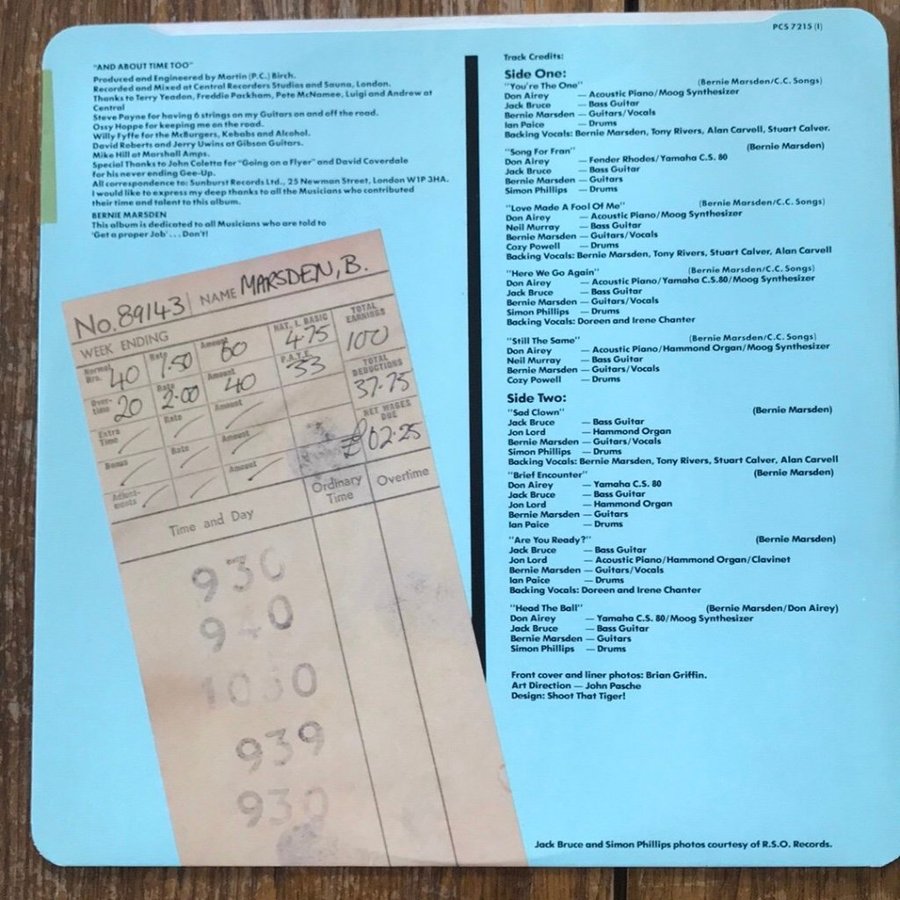 PCS 7215 (I)
"AND ABOUT TIME TOO"
Produced and Engineered by Martin (P.C.) Birch.
Recorded and Mixed at Central Recorders Studios and Sauna, London.
Thanks to Terry Yeadon, Freddie Packham, Pete McNamee, Luigi and Andrew at
Central
Steve Payne for having 6 strings on my Guitars on and off the road.
Ossy Hoppe for keeping me on the road.
Willy Fyffe for the McBurgers, Kebabs and Alcohol.
David Roberts and Jerry Uwins at Gibson Guitars.
Mike Hill at Marshall Amps.
Special Thanks to John Coletta for "Going on a Flyer" and David Coverdale
for his never ending Gee-Up.
All correspondence to: Sunburst Records Ltd., 25 Newman Street, London W1P 3HA.
I would like to express my deep thanks to all the Musicians who contributed
their time and talent to this album.
BERNIE MARSDEN
This album is dedicated to all Musicians who are told to
'Get a proper Job' . . . Don't!
No. 89143 NAME MARSDEN, B.
WEEK ENDING
Normal Hrs. 40 Rate 1.50 Amount 60 NAT. I. BASIC 4.75 TOTAL EARNINGS 100
Over-time 20 Rate 2.00 Amount 40 P.A.Y.E. 33 TOTAL DEDUCTIONS 37.75
Extra Time Rate Amount NET WAGES DUE £62.25
Bonus Rate Amount
Adjust-ments
Time and Day Ordinary Time Overtime
930
940
1030
939
930
Track Credits:
Side One:
"You're The One" (Bernie Marsden/C.C. Songs)
Don Airey — Acoustic Piano/Moog Synthesizer
Jack Bruce — Bass Guitar
Bernie Marsden — Guitars/Vocals
Ian Paice — Drums
Backing Vocals: Bernie Marsden, Tony Rivers, Alan Carvell, Stuart Calver.
"Song For Fran" (Bernie Marsden)
Don Airey — Fender Rhodes/Yamaha C.S. 80
Jack Bruce — Bass Guitar
Bernie Marsden — Guitars
Simon Phillips — Drums
"Love Made A Fool Of Me" (Bernie Marsden/C.C. Songs)
Don Airey — Acoustic Piano/Moog Synthesizer
Neil Murray — Bass Guitar
Bernie Marsden — Guitars/Vocals
Cozy Powell — Drums
Backing Vocals: Bernie Marsden, Tony Rivers, Stuart Calver, Alan Carvell
"Here We Go Again" (Bernie Marsden/C.C. Songs)
Don Airey — Acoustic Piano/Yamaha C.S.80/Moog Synthesizer
Jack Bruce — Bass Guitar
Bernie Marsden — Guitars/Vocals
Simon Phillips — Drums
Backing Vocals: Doreen and Irene Chanter
"Still The Same" (Bernie Marsden/C.C. Songs)
Don Airey — Acoustic Piano/Hammond Organ/Moog Synthesizer
Neil Murray — Bass Guitar
Bernie Marsden — Guitars/Vocals
Cozy Powell — Drums
Side Two:
"Sad Clown" (Bernie Marsden)
Jack Bruce — Bass Guitar
Jon Lord — Hammond Organ
Bernie Marsden — Guitars/Vocals
Simon Phillips — Drums
Backing Vocals: Bernie Marsden, Tony Rivers, Stuart Calver, Alan Carvell
"Brief Encounter" (Bernie Marsden)
Don Airey — Yamaha C.S. 80
Jack Bruce — Bass Guitar
Jon Lord — Hammond Organ
Bernie Marsden — Guitars
Ian Paice — Drums
"Are You Ready?" (Bernie Marsden)
Jack Bruce — Bass Guitar
Jon Lord — Acoustic Piano/Hammond Organ/Clavinet
Bernie Marsden — Guitars/Vocals
Ian Paice — Drums
Backing Vocals: Doreen and Irene Chanter
"Head The Ball" (Bernie Marsden/Don Airey)
Don Airey — Yamaha C.S. 80/Moog Synthesizer
Jack Bruce — Bass Guitar
Bernie Marsden — Guitars
Simon Phillips — Drums
Front cover and liner photos: Brian Griffin.
Art Direction — John Pasche
Design: Shoot That Tiger!
Jack Bruce and Simon Phillips photos courtesy of R.S.O. Records.